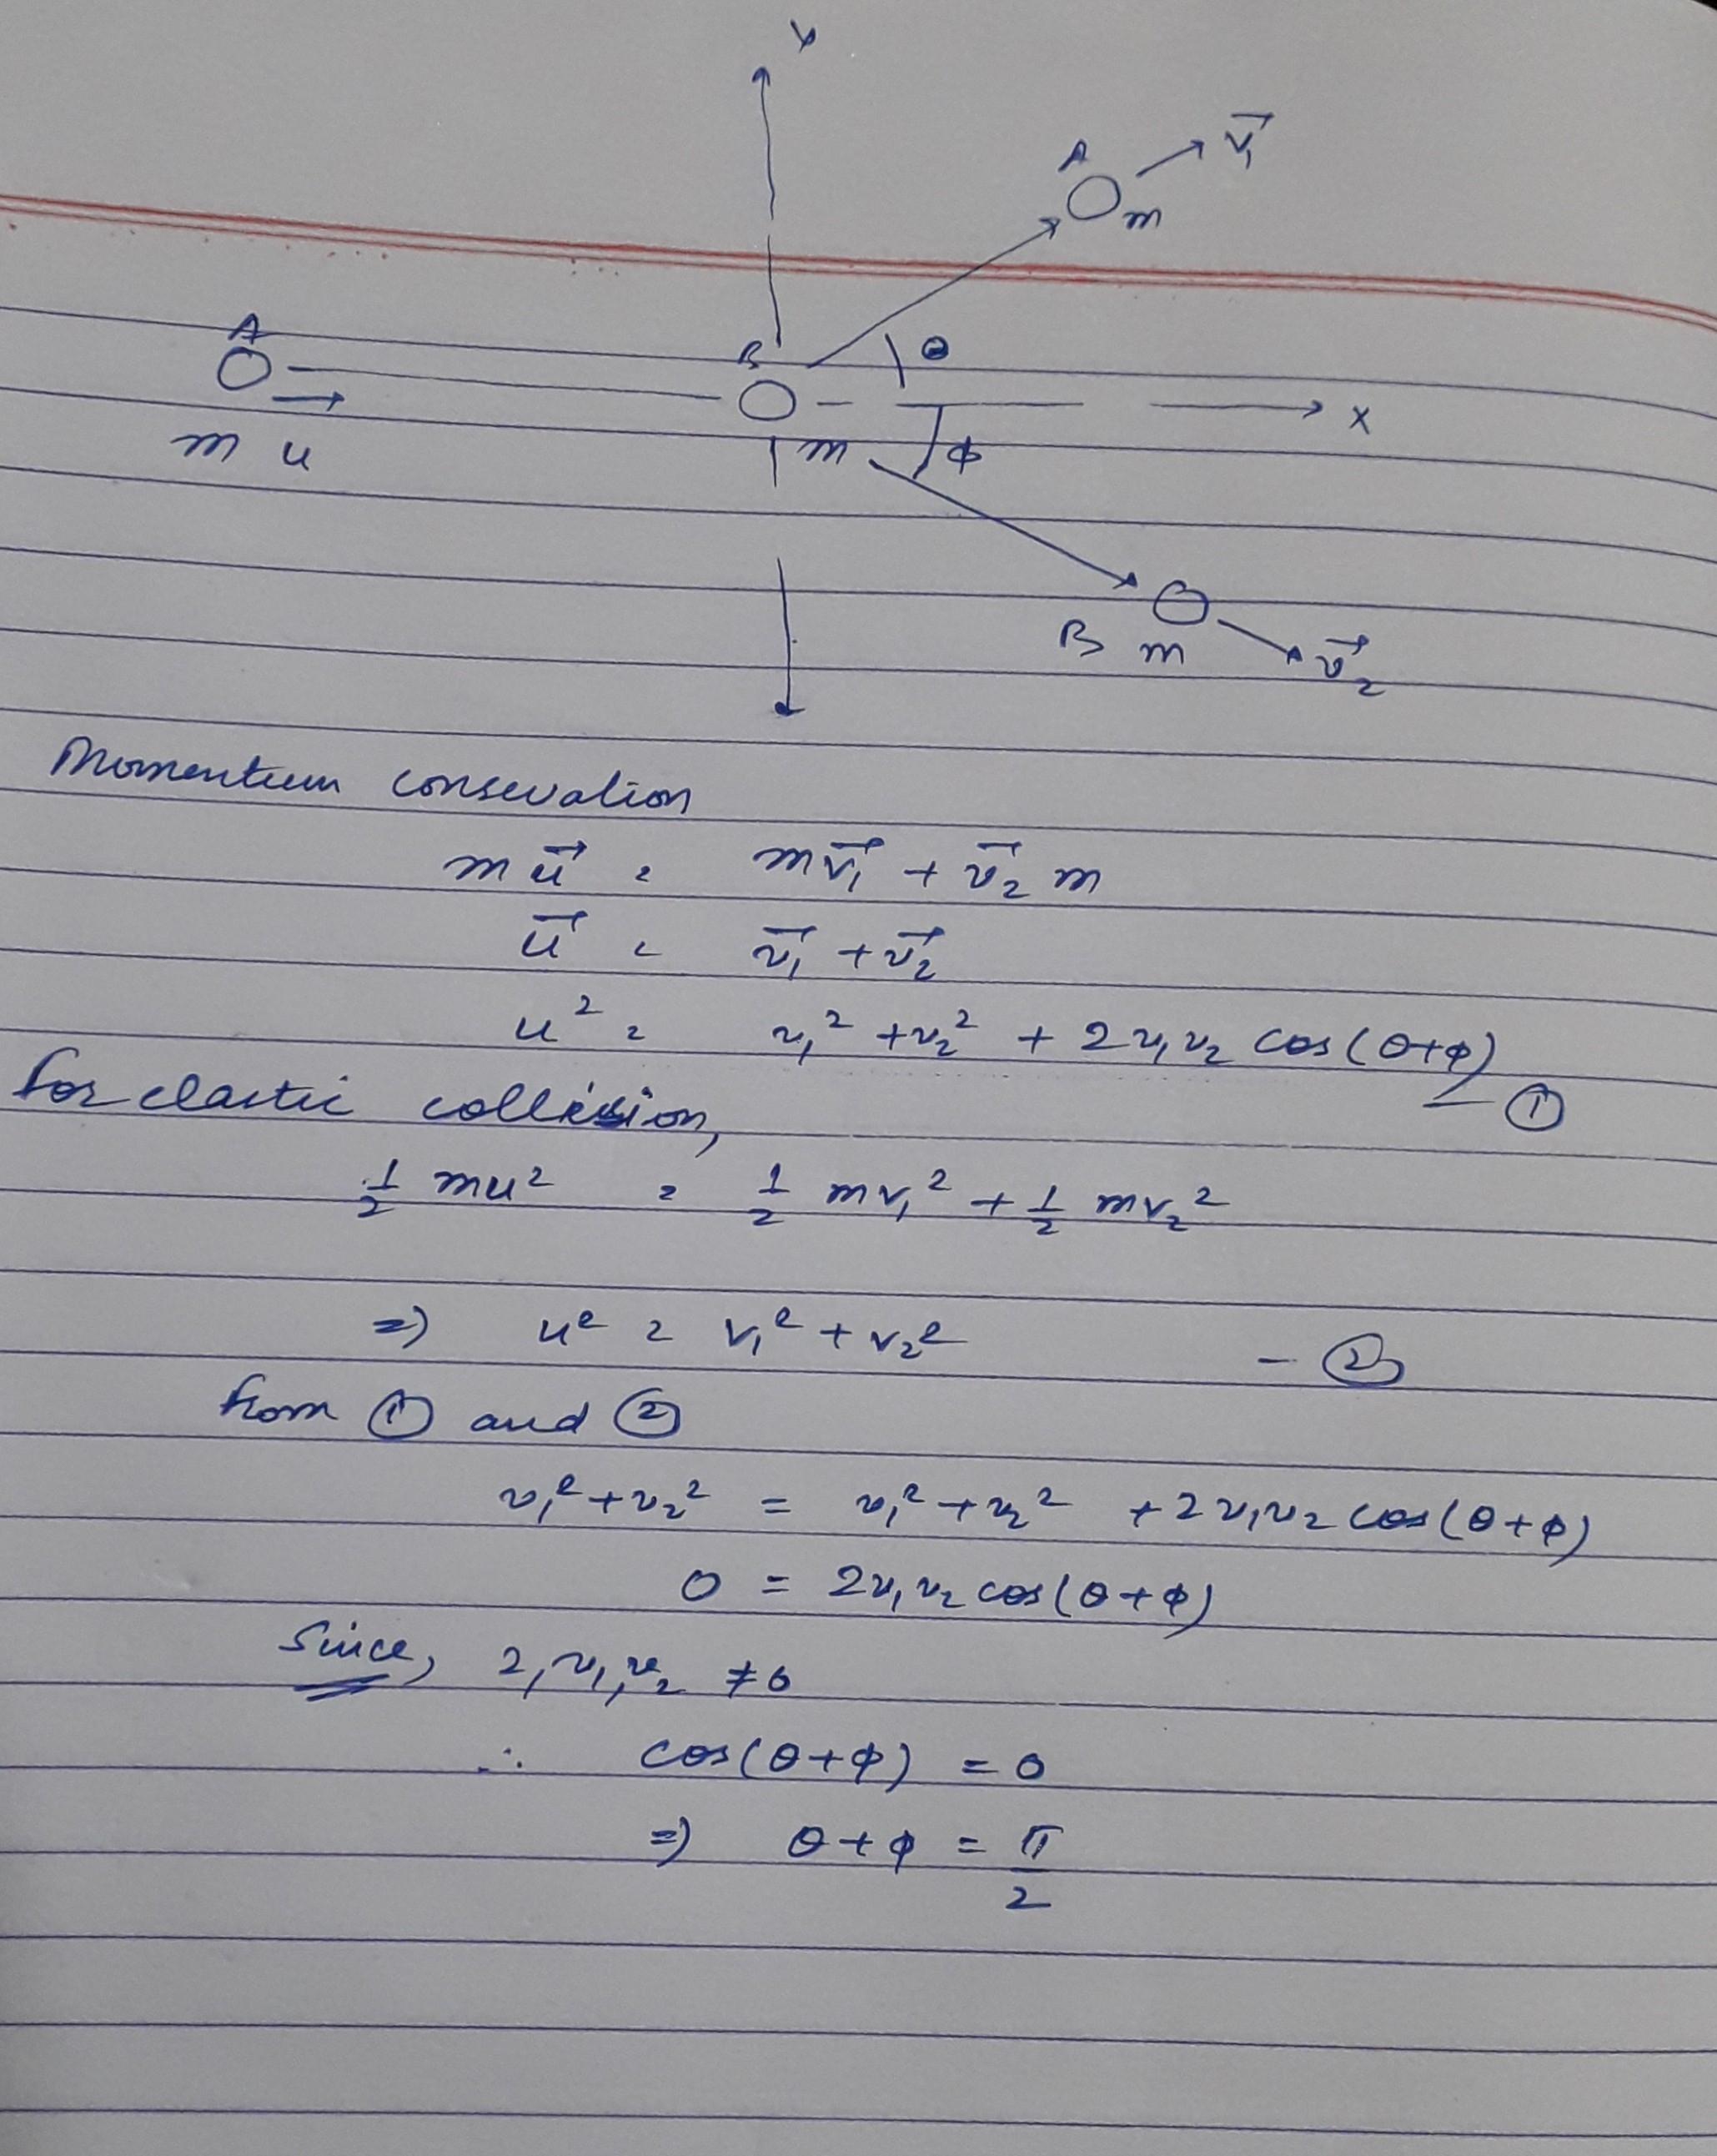 Y
A → v⃗₁
m
A
B θ
→ X
m u m ϕ
B m v⃗₂
Momentum consevation
m u⃗ = m v⃗₁ + v⃗₂ m
u⃗ = v⃗₁ + v⃗₂
u² = v₁² + v₂² + 2 v₁ v₂ cos(θ+ϕ)
— ①
for elastic collision,
½ mu² = ½ mv₁² + ½ mv₂²
⇒ u² = v₁² + v₂² — ②
from ① and ②
v₁² + v₂² = v₁² + v₂² + 2 v₁ v₂ cos(θ+ϕ)
0 = 2 v₁ v₂ cos(θ+ϕ)
Since, 2, v₁, v₂ ≠ 0
∴ cos(θ+ϕ) = 0
⇒ θ+ϕ = π/2